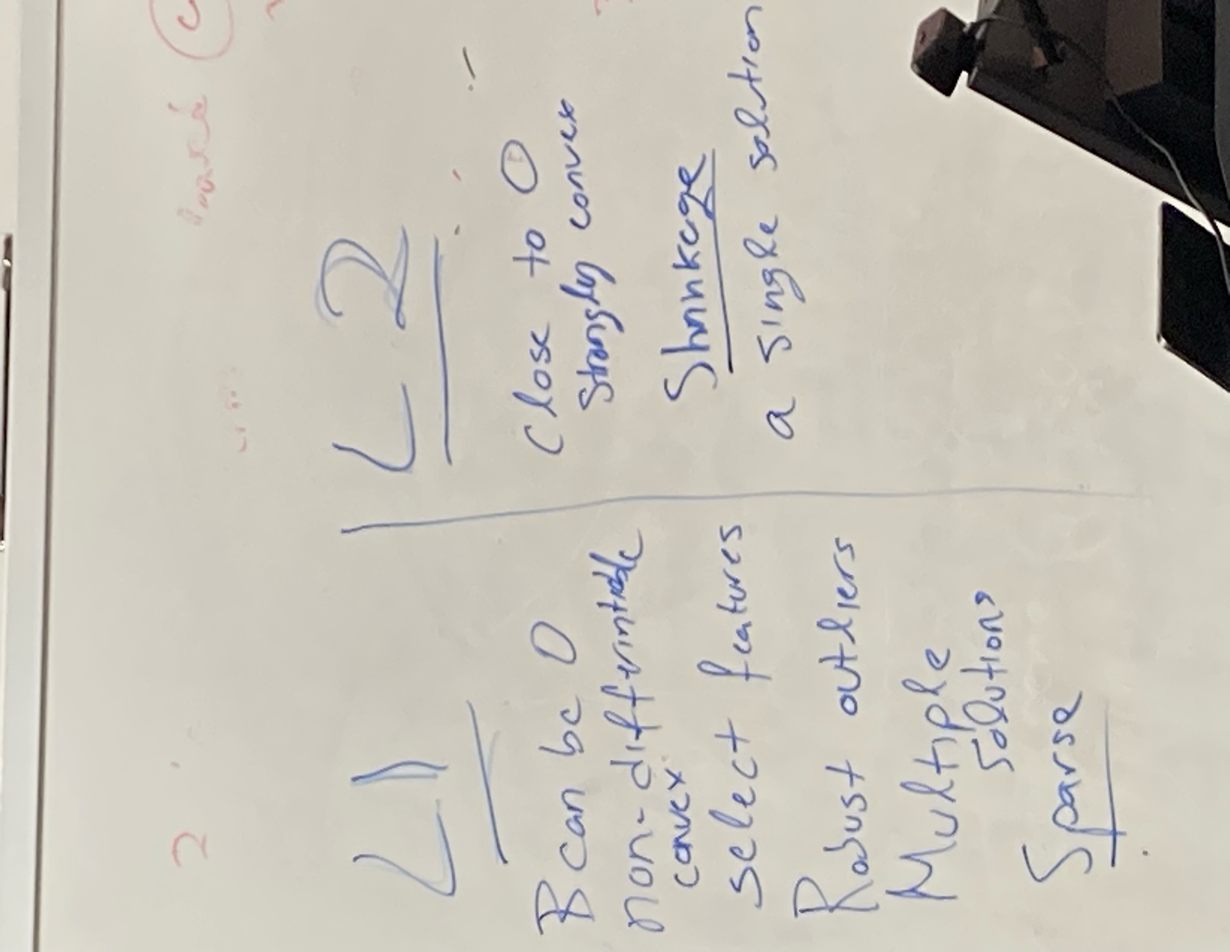 L1
B can be 0
non-diffrintiable
convex
select features
Robust outliers
Multiple
solutions
Sparse
L2
Close to 0
Strongly convex
Shrinkage
a single solution
2